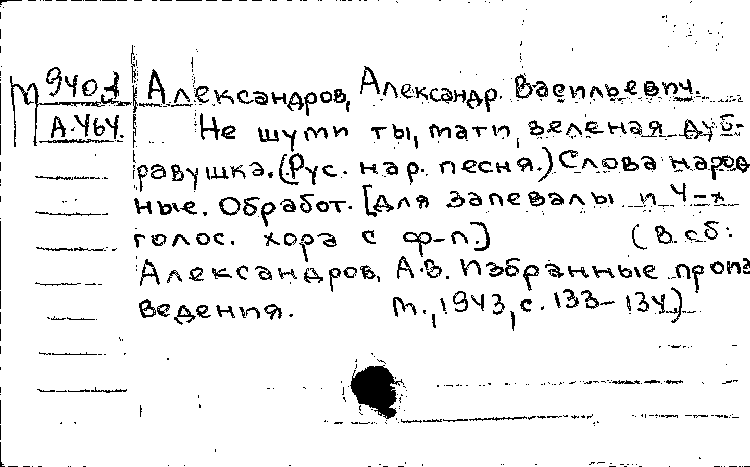 М 940з Александров, Александр Васильевич.
А-464. Не шуми ты, мати, зеленая дуб-
равушка. (Рус. нар. песня.) Слова народ
ные. Обработ. [Для запевалы и 4-х
голос. хора с ф-п.] (В сб:
Александров, А.В. Избранные произ
ведения. М., 1943, с. 133-134)